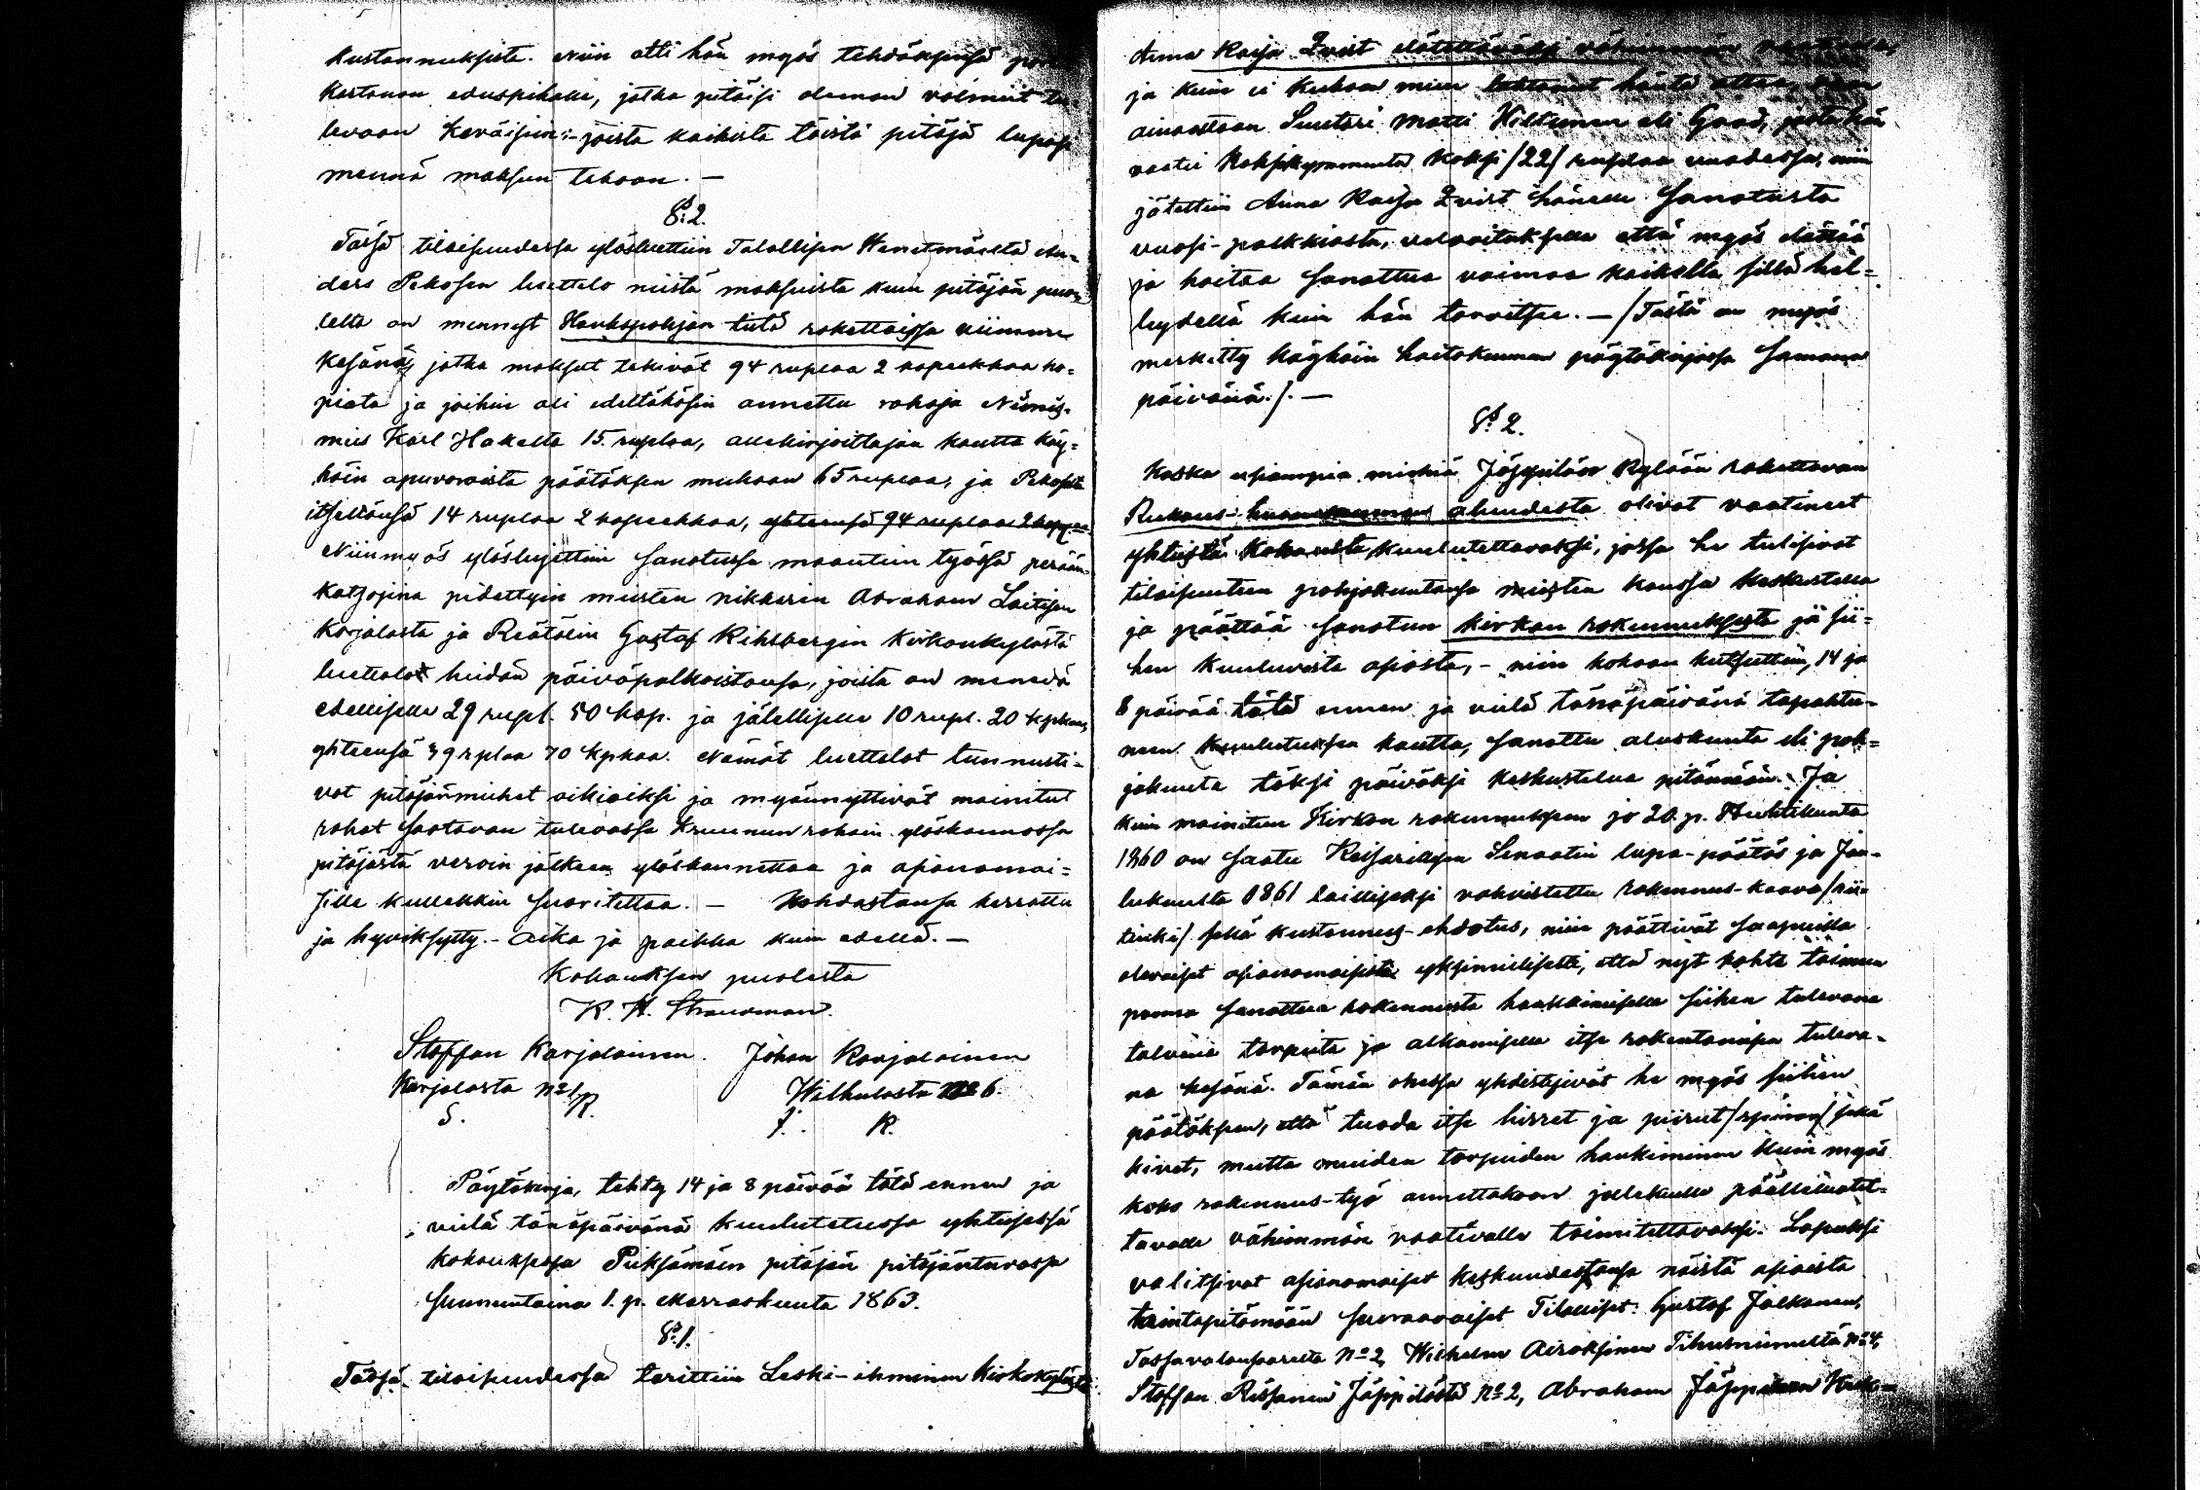 kustannuksista. Niin otti hän myös tehdäksensä
kartanon eduspihalle, jotka pitäisi oleman valmiit tu-
levaan Kevääsen; - joista kaikista töistä pitäjä lupasi
mennä maksun tekoon. —
§ 2.
Tässä tilaisuudessa ylösluettiin Talollisen Wanamäeltä An-
ders Pekosen luettelo niistä maksuista kuin pitäjän puo-
lelta on mennyt Haukspohjan tietä rakettaissa viimme
kesänä, jotka maksut tekivät 94 ruplaa 2 kopeekkaa ho-
piata ja joihin oli edeltäkäsin annettu rahoja Nimis-
mies Karl Hakelta 15. ruplaa, allekirjoittajan kautta köy-
häin apuvaroista päätöksen mukaan 65 ruplaa, ja Pekoselta
itseltänsä 14 ruplaa 2 kopeekkaa, yhteensä 94 ruplaa 2 kopp:aa.
Niinmyös ylöslujettiin sanotussa maantien työssä perään-
katsojina pidettyin miesten nikkarin Abraham Laitisen
Karjalasta ja Räätälin Gustaf Rihlbergin Kirkonkylästä
luettelot heidän päiväpalkoistansa, joista on menevä
edelliselle 29 rupl. 50 kop. ja jälelliselle 10 rupl. 20 kpkaa,
yhteensä 39 rplaa 70 kpkaa. Nämät luettelot tunnusti-
vat pitäjänmiehet oikiaiksi ja myönnyttivät mainitut
rahat saatavan tulevassa kruunun rahain ylöskannossa
pitäjästä veroin jälkeen ylöskannettaa ja asianomai-
sille kullekkin suoritettaa. — Kohdastansa kerrottu
ja hyviksytty. - Aika ja paikka kuin edellä. —
Kokouksen puolesta
K. H. Strandman.
Staffan Karjalainen. Johan Karjalainen
Karjalasta No 1. Wilhulasta No 6.
S. K. J. K.
Pöytäkirja, tehty 14 ja 8 päivää tätä ennen ja
vielä tänäpäivänä kuulutetussa yhteisessä
kokouksessa Pieksämäen pitäjän pitäjäntuvassa
sunnuntaina 1. p. Marraskuuta 1863.
§ 1.
Tässä tilaisuudessa tarittiin Leski-ihminen Kirkokylästä
Anna Kaisa Qvist elätettäväksi vähimmän
ja kuin ei kukaan muu tahtonut häntä ottaa,
ainoastaan Suutari Matti Hiltunen eli Goad, josta hän
vaatii kaksikymmentä kaksi /22/ ruplaa vuodessa, niin
jätettiin Anna Kaisa Qvist hänelle sanotusta
vuosi-palkkiosta, velvoituksella että myös elättää
ja hoitaa sanottua vaimoa kaikella sillä hel-
leydellä kuin hän tarvitsee. — /Tästä on myös
merkitty köyhäin hoitokunnan pöytäkirjassa samana
päivänä./. —
§ 2.
Koska useampia miehiä Jäppilän Kylään rakettavan
Rukous-huonekunnan alueudesta olivat vaatineet
yhteistä Kokousta kuulutettavaksi, jossa he tulisivat
tilaisuuteen pohjakuntansa miesten kanssa keskustella
ja päättää sanotun kirkon rakennuksesta ja sii-
hen kuuluvista asiosta, - niin kokoon kutsuttiin, 14 ja
8 päivää tätä ennen ja vielä tänäpäivänä tapahtu-
neen kuulutuksen kautta, sanottu aluskunta eli poh-
jakunta täksi päiväksi keskustelua pitämään. Ja
kuin mainitun Kirkon rakennukseen jo 20. p. Huhtikuuta
1860 on saatu Keisarillisen Senaatin lupa-päätös ja Jou-
lukuusta 1861 laillisesti vahvistettu rakennus-kaava /rii-
tinki/ sekä kustannus-ehdotus, niin päättivät saapuvilla
olevaiset asianomaisista yksimielisesti, että nyt kohta toimeen
panna sanottua rakennusta hankkimisella siihen tulevana
talvena tarpeita ja alkamisella itse rakentamisen tuleva-
na kesänä. Tämän ohessa yhdistyivät he myös siihen
päätökseen, että tuoda itse hirret ja piirut /spiiran/ sekä
kivet, mutta muiden tarpeiden hankkiminen kuin myös
koko rakennus-työ annettakoon jollekulle päälleluotet-
tavalle vähimmän vaativalle toimitettavaksi. Lopuksi
valitsivat asianomaiset keskuudestansa näistä asioista
vaintapitämään seuraavaiset Tilalliset: Gustaf Jalkanen,
Tossavalansaarelta No 2, Wilhelm Airaksinen Tihusniemeltä No 4,
Staffan Rissanen Jäppilästä No 2, Abraham Jäppinen